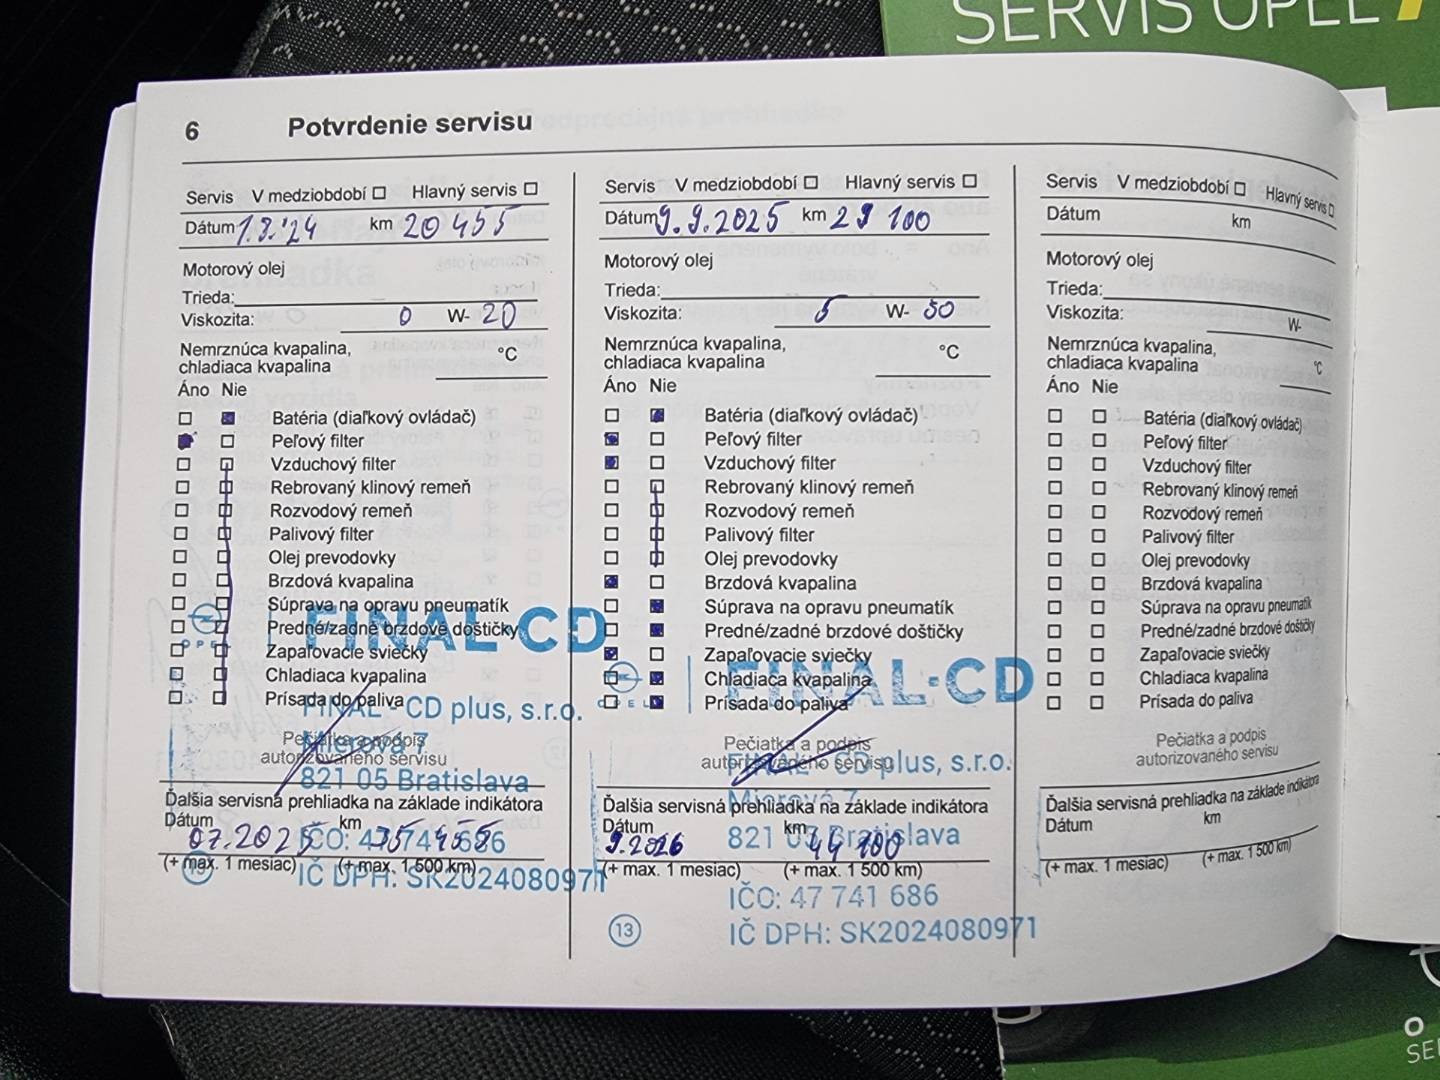 SERVIS OPEL
6 Potvrdenie servisu
Servis V medziobdobí Hlavný servis
Dátum 1.8.'24 km 20 455
Motorový olej
Trieda:
Viskozita: 0 W- 20
Nemrznúca kvapalina,
chladiaca kvapalina °C
Áno Nie
Batéria (diaľkový ovládač)
Peľový filter
Vzduchový filter
Rebrovaný klinový remeň
Rozvodový remeň
Palivový filter
Olej prevodovky
Brzdová kvapalina
Súprava na opravu pneumatík
Predné/zadné brzdové doštičky
Zapaľovacie sviečky
Chladiaca kvapalina
Prísada do paliva
OPEL FINAL-CD
FINAL - CD plus, s.r.o.
Mierová 7
821 05 Bratislava
IČO: 47 741 686
IČ DPH: SK2024080971
13
Pečiatka a podpis
autorizovaného servisu
Ďalšia servisná prehliadka na základe indikátora
Dátum km
07.2025 35 455
(+ max. 1 mesiac) (+ max. 1 500 km)
Servis V medziobdobí Hlavný servis
Dátum 9.9.2025 km 29 100
Motorový olej
Trieda:
Viskozita: 5 W- 30
Nemrznúca kvapalina,
chladiaca kvapalina °C
Áno Nie
Batéria (diaľkový ovládač)
Peľový filter
Vzduchový filter
Rebrovaný klinový remeň
Rozvodový remeň
Palivový filter
Olej prevodovky
Brzdová kvapalina
Súprava na opravu pneumatík
Predné/zadné brzdové doštičky
Zapaľovacie sviečky
Chladiaca kvapalina
Prísada do paliva
OPEL FINAL-CD
Pečiatka a podpis
autorizovaného servisu
FINAL - CD plus, s.r.o.
Mierová 7
821 05 Bratislava
IČO: 47 741 686
IČ DPH: SK2024080971
13
Ďalšia servisná prehliadka na základe indikátora
Dátum km
9.2026 44 100
(+ max. 1 mesiac) (+ max. 1 500 km)
Servis V medziobdobí Hlavný servis
Dátum km
Motorový olej
Trieda:
Viskozita: W-
Nemrznúca kvapalina,
chladiaca kvapalina °C
Áno Nie
Batéria (diaľkový ovládač)
Peľový filter
Vzduchový filter
Rebrovaný klinový remeň
Rozvodový remeň
Palivový filter
Olej prevodovky
Brzdová kvapalina
Súprava na opravu pneumatík
Predné/zadné brzdové doštičky
Zapaľovacie sviečky
Chladiaca kvapalina
Prísada do paliva
Pečiatka a podpis
autorizovaného servisu
Ďalšia servisná prehliadka na základe indikátora
Dátum km
(+ max. 1 mesiac) (+ max. 1 500 km)